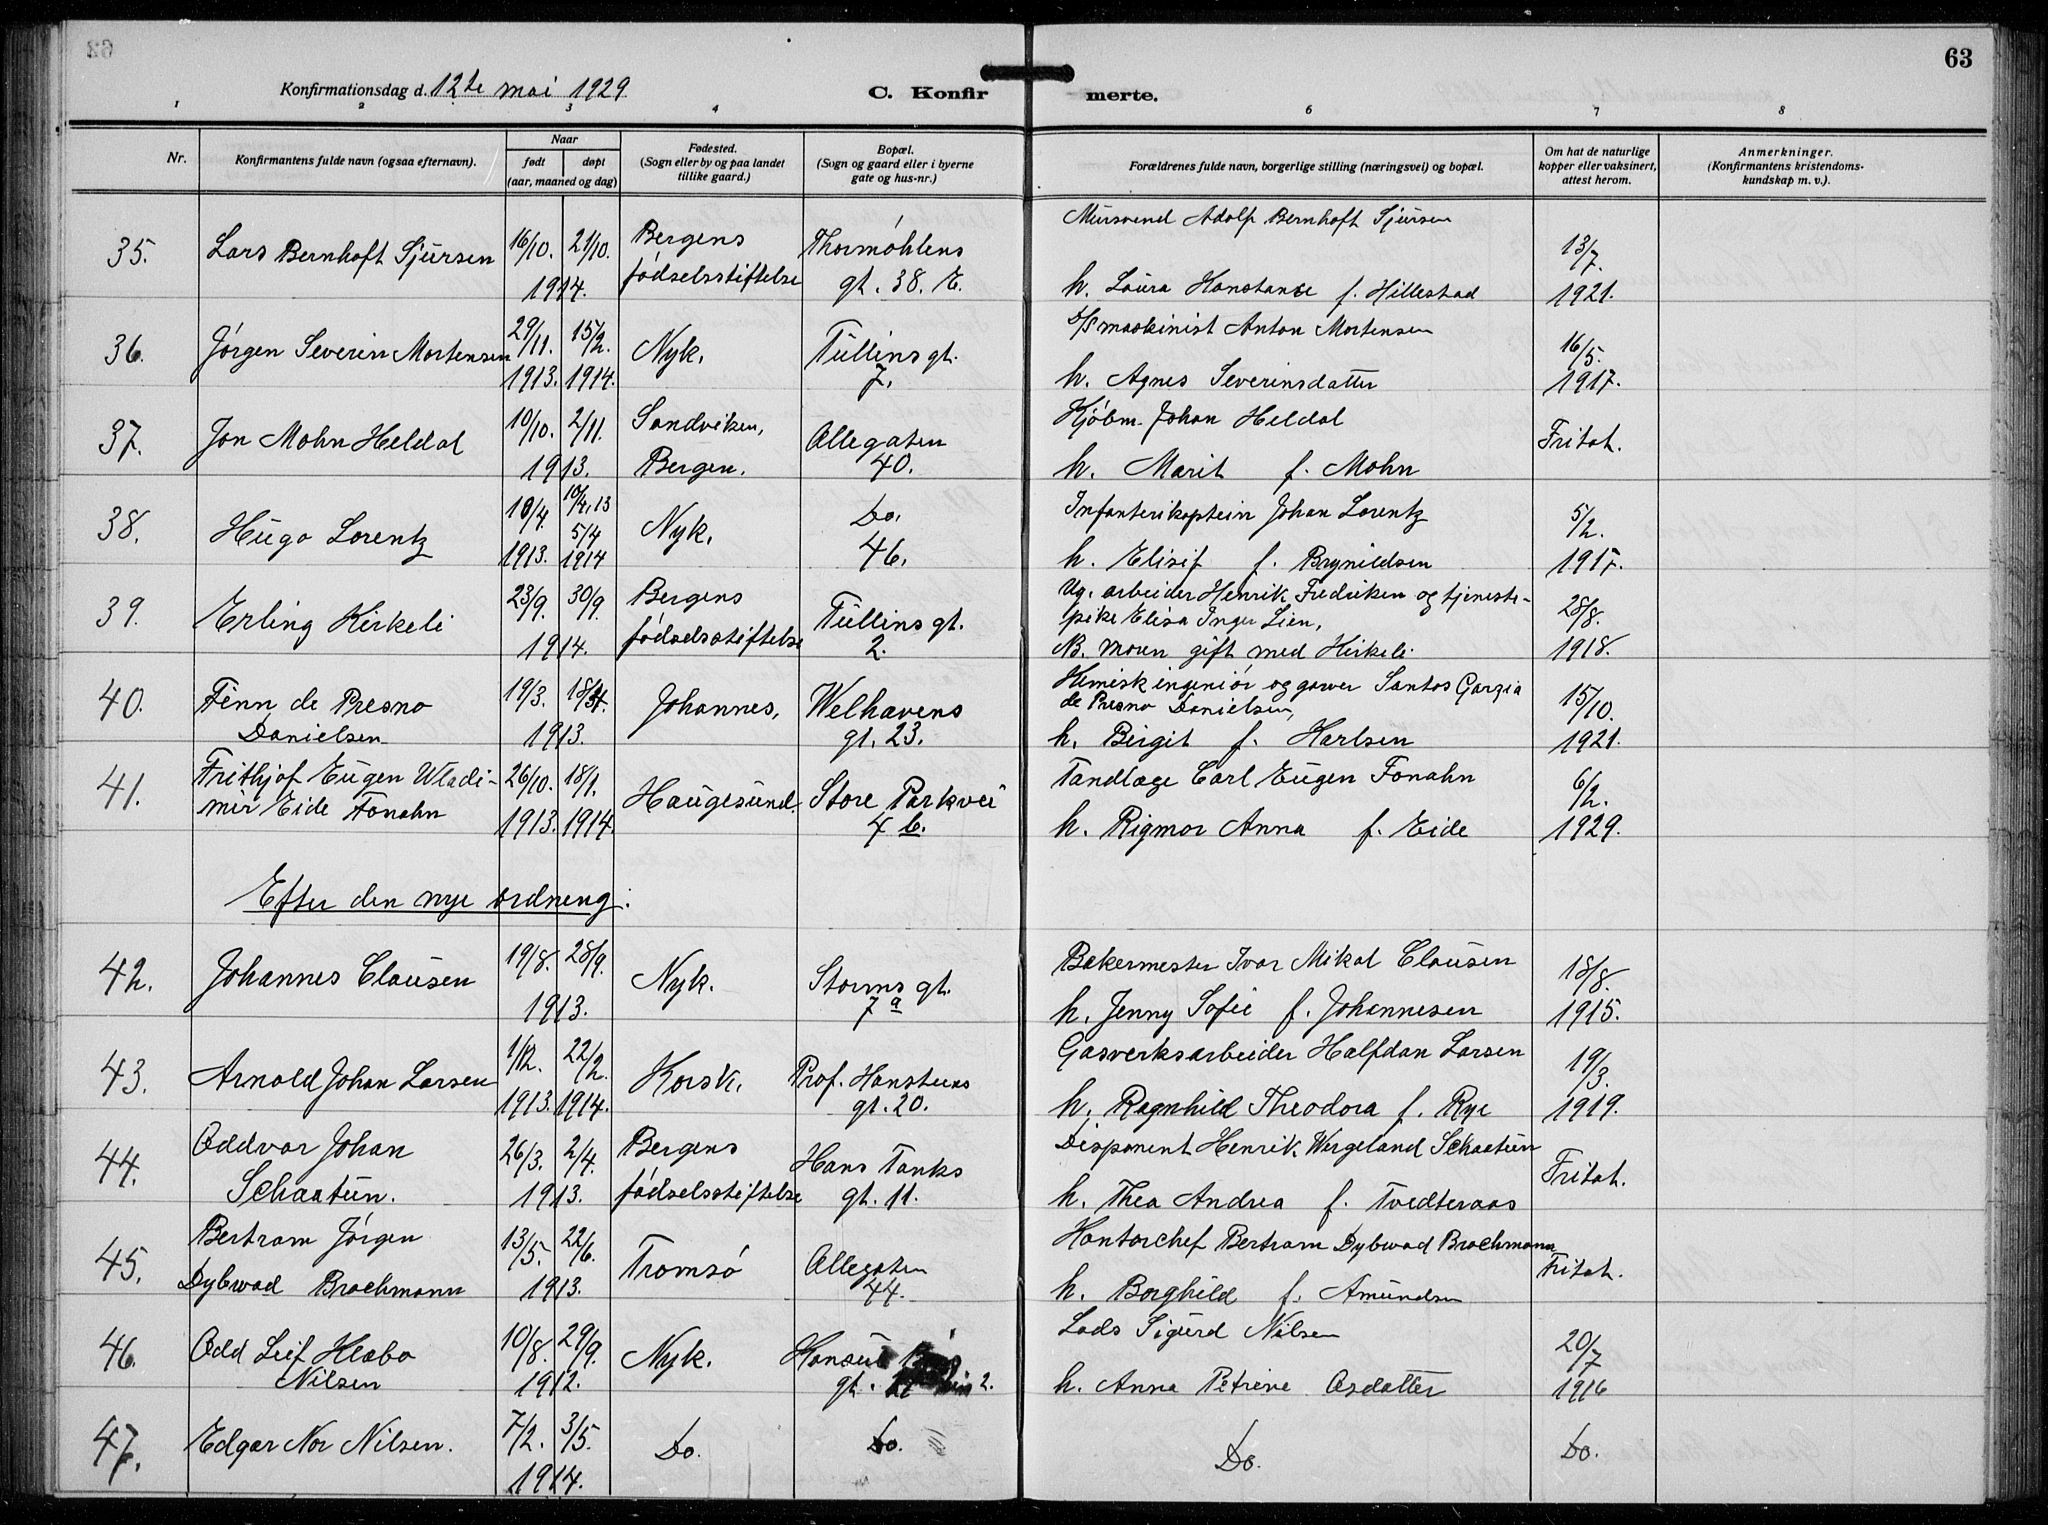 63
Konfirmationsdag d. 12te mai 1929
C. Konfir merte.
1 2 3 4 6 7 8
Nr.
Konfirmantens fulde navn (ogsaa efternavn).
Naar
født døpt
(aar, maaned og dag)
Fødested.
(Sogn eller by og paa landet
tillike gaard.)
Bopæl.
(Sogn og gaard eller i byerne
gate og hus-nr.)
Forældrenes fulde navn, borgerlige stilling (næringsvei) og bopæl.
Om hat de naturlige
kopper eller vaksinert,
attest herom.
Anmerkninger.
(Konfirmantens kristendoms-
kundskap m. v.).
35. Lars Bernhoft Sjursen
16/10. 21/10.
1914.
Bergens
fødselsstiftelse
Thormøhlens
gt. 38. E.
Mursvend Adolf Bernhoft Sjursen
h. Laura Konstanse f. Hillestad
13/7.
1921.
36. Jørgen Severin Mortensen
29/11. 15/2.
1913. 1914.
Nyk.
Tullins gt.
7.
D/S maskinist Anton Mortensen
h. Agnes Severinsdatter
16/5.
1917.
37. Jon Mohn Heldal
10/10. 2/11.
1913.
Sandviken,
Bergen.
Allegaten
40.
Kjøbm. Johan Heldal
h. Marit f. Mohn
Fritat.
38. Hugo Lorentz
10/4. 10/4.13
5/4
1913. 1914
Nyk.
Do.
46.
Infanterikaptein Johan Lorentz
h. Elisif f. Brynildsen
5/2.
1917.
39. Erling Kirkeli
23/9. 30/9.
1914.
Bergens
fødselsstiftelse
Tullins gt.
2.
Ug. arbeider Henrik Fredriksen og tjeneste-
pike Elisa Inger Lien,
NB. moren gift med Kirkeli.
28/8.
1918.
40. Finn de Presno
Danielsen
19/3. 18/4.
1913.
Johannes,
Welhavens
gt. 23.
Kemisk ingeniør og garver Santos Garzia
de Presno Danielsen,
h. Birgit f. Karlsen
15/10.
1921.
41. Frithjof Eugen Wladi-
mir Eide Fonahn
26/10. 18/1.
1913. 1914.
Haugesund.
Store Parkvei
4 b.
Tandlæge Carl Eugen Fonahn
h. Rigmor Anna f. Eide
6/2.
1929.
Efter den nye ordning:
42. Johannes Clausen
19/8. 28/9.
1913.
Nyk.
Storms gt.
7 a
Bakermester Ivar Mikal Clausen
h. Jenny Sofie f. Johannesen
18/8.
1915.
43. Arnold Johan Larsen
1/12. 22/2.
1913. 1914.
Korsk.
Prof. Hansteens
gt. 20.
Gasverksarbeider Halfdan Larsen
h. Ragnhild Theodora f. Rye
19/3.
1919.
44. Oddvar Johan
Schaatun.
26/3. 2/4.
1913.
Bergens
fødselsstiftelse
Hans Tanks
gt. 11.
Disponent Henrik Wergeland Schaatun
h. Thea Andrea f. Tvedteraas
Fritat.
45. Bertram Jørgen
Dybwad Brochmann
13/5. 22/6.
1913.
Tromsø
Allegaten
44.
Kontorchef Bertram Dybwad Brochmann
h. Borghild f. Amundsen
Fritat.
46. Odd Leif Klabo
Nilsen
10/8. 29/9.
1912.
Nyk.
Konsul
gt. 2.
Lods Sigurd Nilsen
h. Anna Petrine Asdatter
20/7
1916
47. Edgar Nor Nilsen.
7/2. 3/5.
1914.
Do.
Do.
Do.
Do.